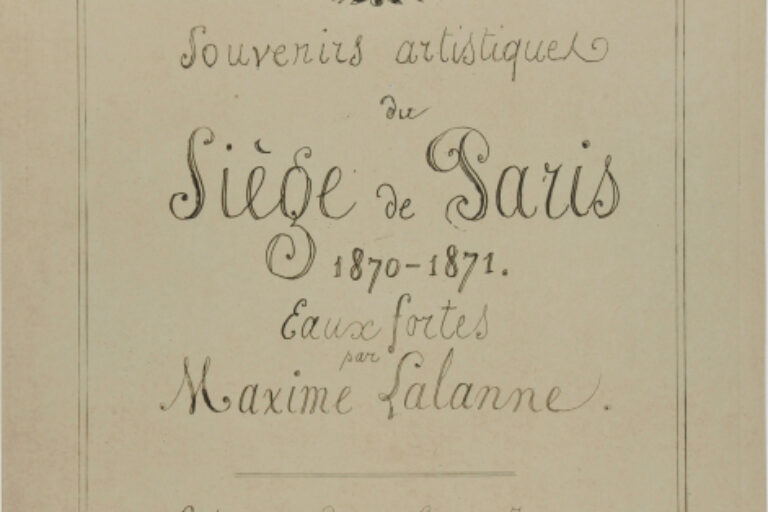 Souvenirs artistiques
du
Siège de Paris
1870-1871.
Eaux fortes
par
Maxime Lalanne.